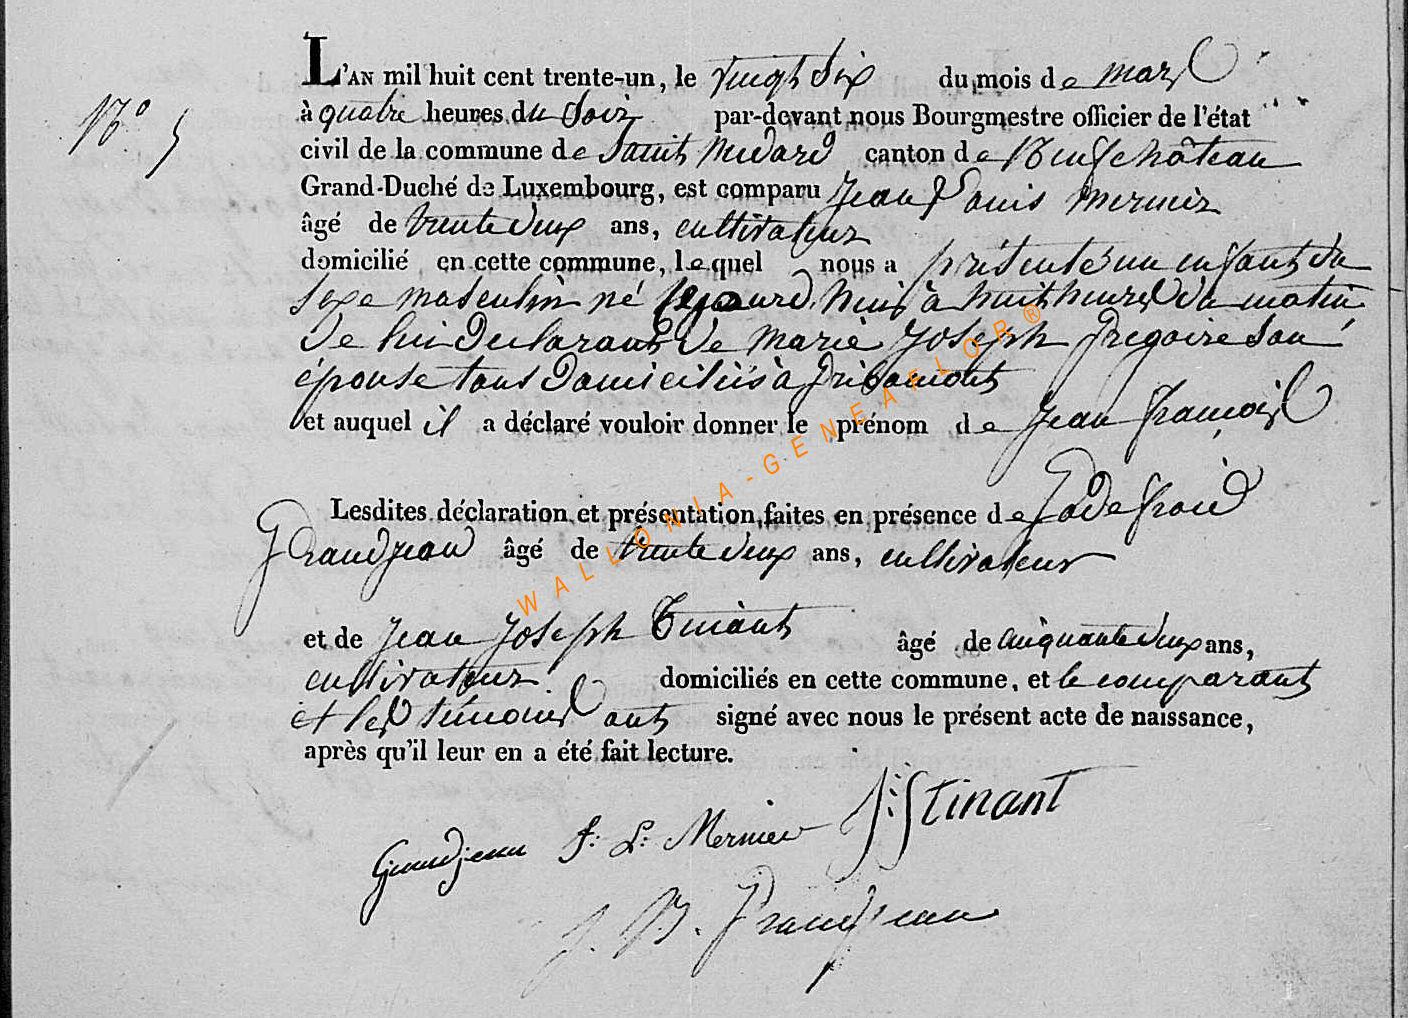 L'AN mil huit cent trente-un, le vingt Six du mois de mars
N° 5
à quatre heures du Soir par-devant nous Bourgmestre officier de l'état
civil de la commune de Saint Médard canton de Neufchâteau
Grand-Duché de Luxembourg, est comparu Jean Louis Mernier
âgé de trente deux ans, cultivateur
domicilié en cette commune, lequel nous a présenté un enfant du
Sexe masculin né cejourd'hui à huit heures du matin
De lui Déclarant De Marie Joseph Gregoire Son
épouse tous Domiciliés à Gribomont
et auquel il a déclaré vouloir donner le prénom de Jean François
Lesdites déclaration et présentation faites en présence de Godefroid
Grandjean âgé de trente deux ans, cultivateur
et de Jean Joseph Tinant âgé de cinquante deux ans,
cultivateur domiciliés en cette commune, et le comparant
et les témoins ont signé avec nous le présent acte de naissance,
après qu'il leur en a été fait lecture.
Grandjean J: L: Mernier J: J Tinant
J. B. Grandjean
WALLONIA-GENEAFLOR®